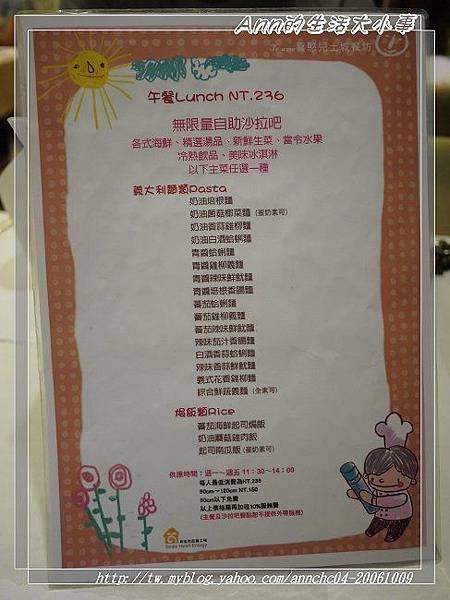 Ann的生活大小事
喜憨兒土城餐坊
午餐Lunch NT.236
無限量自助沙拉吧
各式海鮮、精選湯品、新鮮生菜、當令水果
冷熱飲品、美味冰淇淋
以下主菜任選一種
義大利麵類Pasta
奶油培根麵
奶油菌菇椰菜麵 (蛋奶素可)
奶油香蒜雞柳麵
奶油白酒蛤蜊麵
青醬蛤蜊麵
青醬雞柳義麵
青醬辣味鮮魷麵
青醬培根香腸麵
蕃茄蛤蜊麵
蕃茄雞柳義麵
蕃茄辣味鮮魷麵
辣味茄汁香腸麵
白酒香蒜蛤蜊麵
辣味香蒜鮮魷麵
義式花香雞柳麵
綜合鮮蔬義麵 (全素可)
焗飯類Rice
蕃茄海鮮起司焗飯
奶油蘑菇雞肉飯
起司南瓜飯 (蛋奶素可)
供應時間：週一～週五 11：30～14：00
每人最低消費為NT.236
90cm～120cm NT.150
90cm以下免費
以上價格需再加收10%服務費
(主餐及沙拉吧餐點恕不提供外帶服務)
http://tw.myblog.yahoo.com/annchc04-20061009